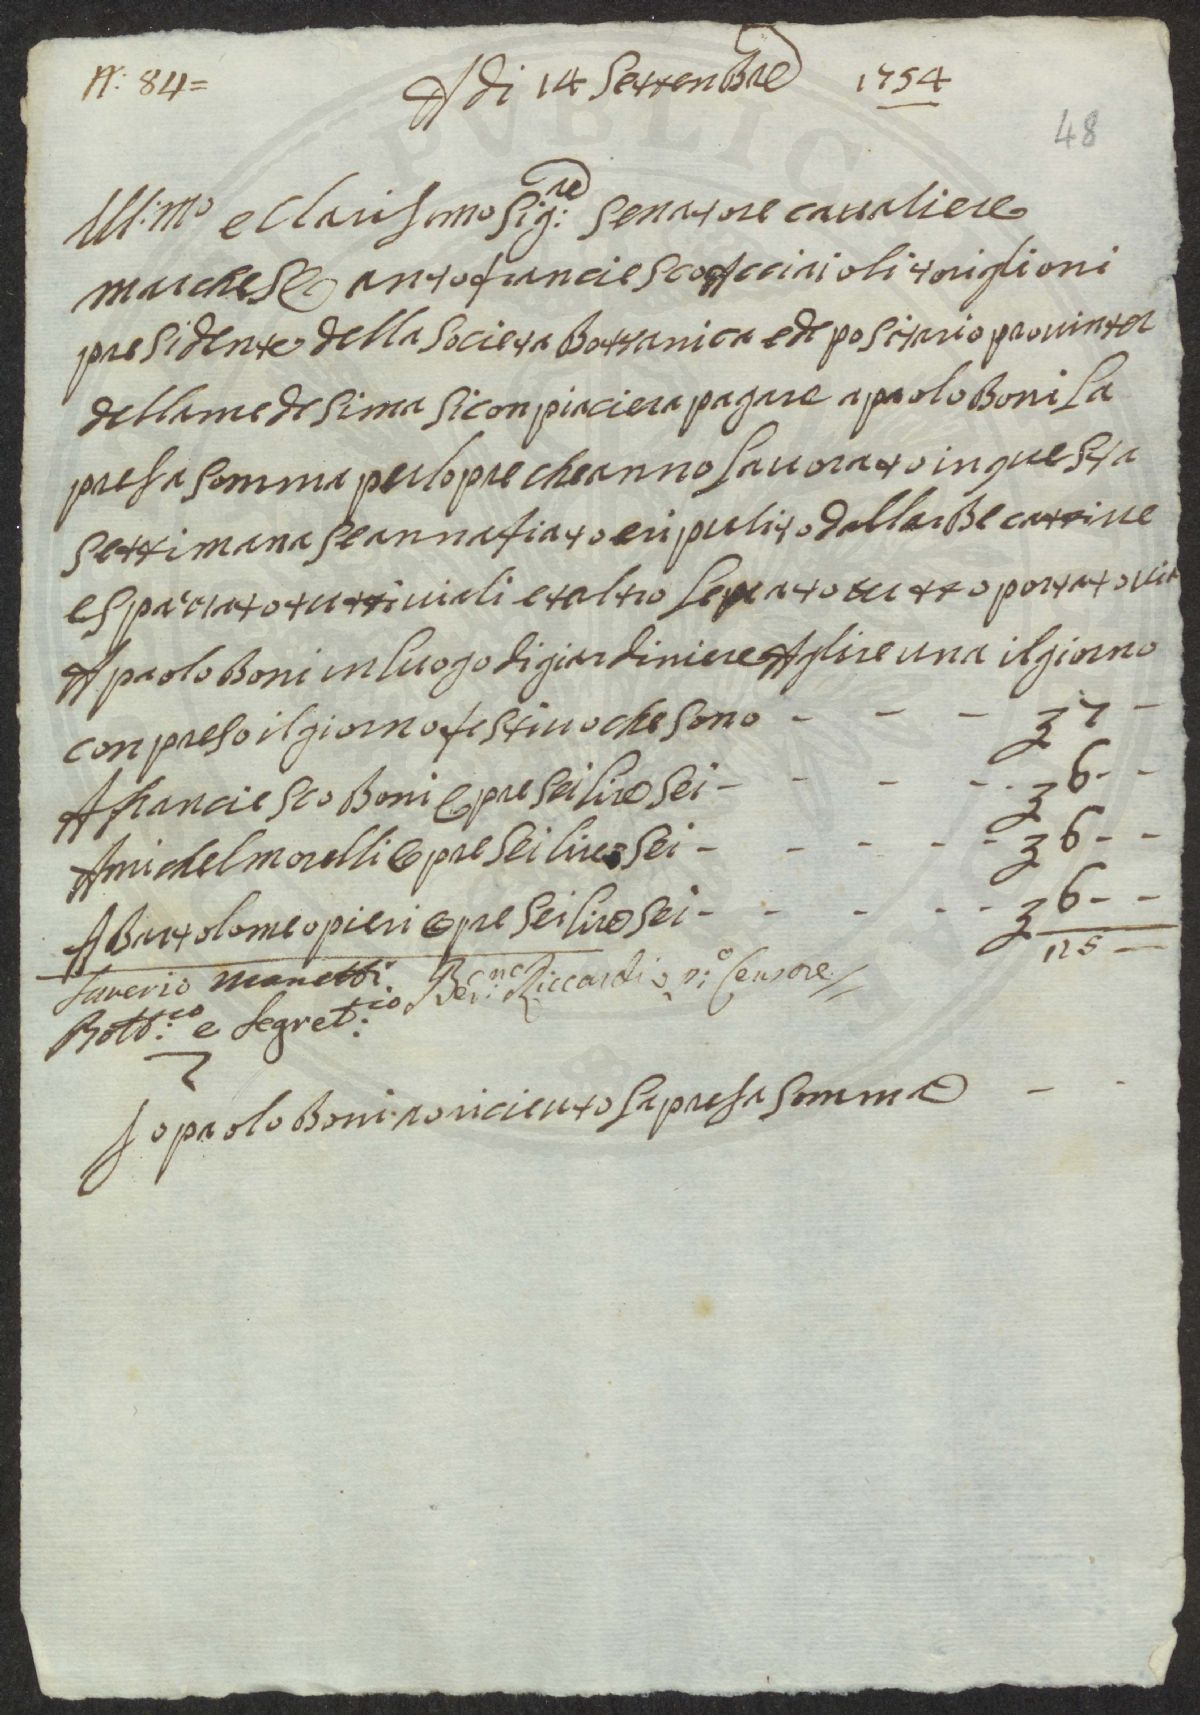 N: 84=
A di 14 Settenbre 1754
48
Ill:mo e Clarissimo Sig:re Senatore caualiere
marchese antofranciesco Acciaioli toriglioni
presidente della Societa Bottanica e depositario prouinter
della medesima si conpiaciera pagare a paolo Boni La
presa somma per lopre che anno Lauorato in questa
settimana se annafiato e ripulito dalla Be
e tutti i uiali et altro tutto portato uia
A paolo Boni in luogo di giardiniere A lire una il giorno
conpreso il giorno festiuo che sono - - - 7 -
A franciesco Boni opre sei lire sei - - - - - 6 - -
A michel morelli opre sei lire sei - - - - - 6 - -
A Bartolomeo pieri opre sei lire sei - - - - - 6 - -
25 -
Saverio Manetti Ber:no Riccardi Censore
Bott:co e Segret:io
Io paolo Boni o riceuto la presa somma - -
PVBLIC